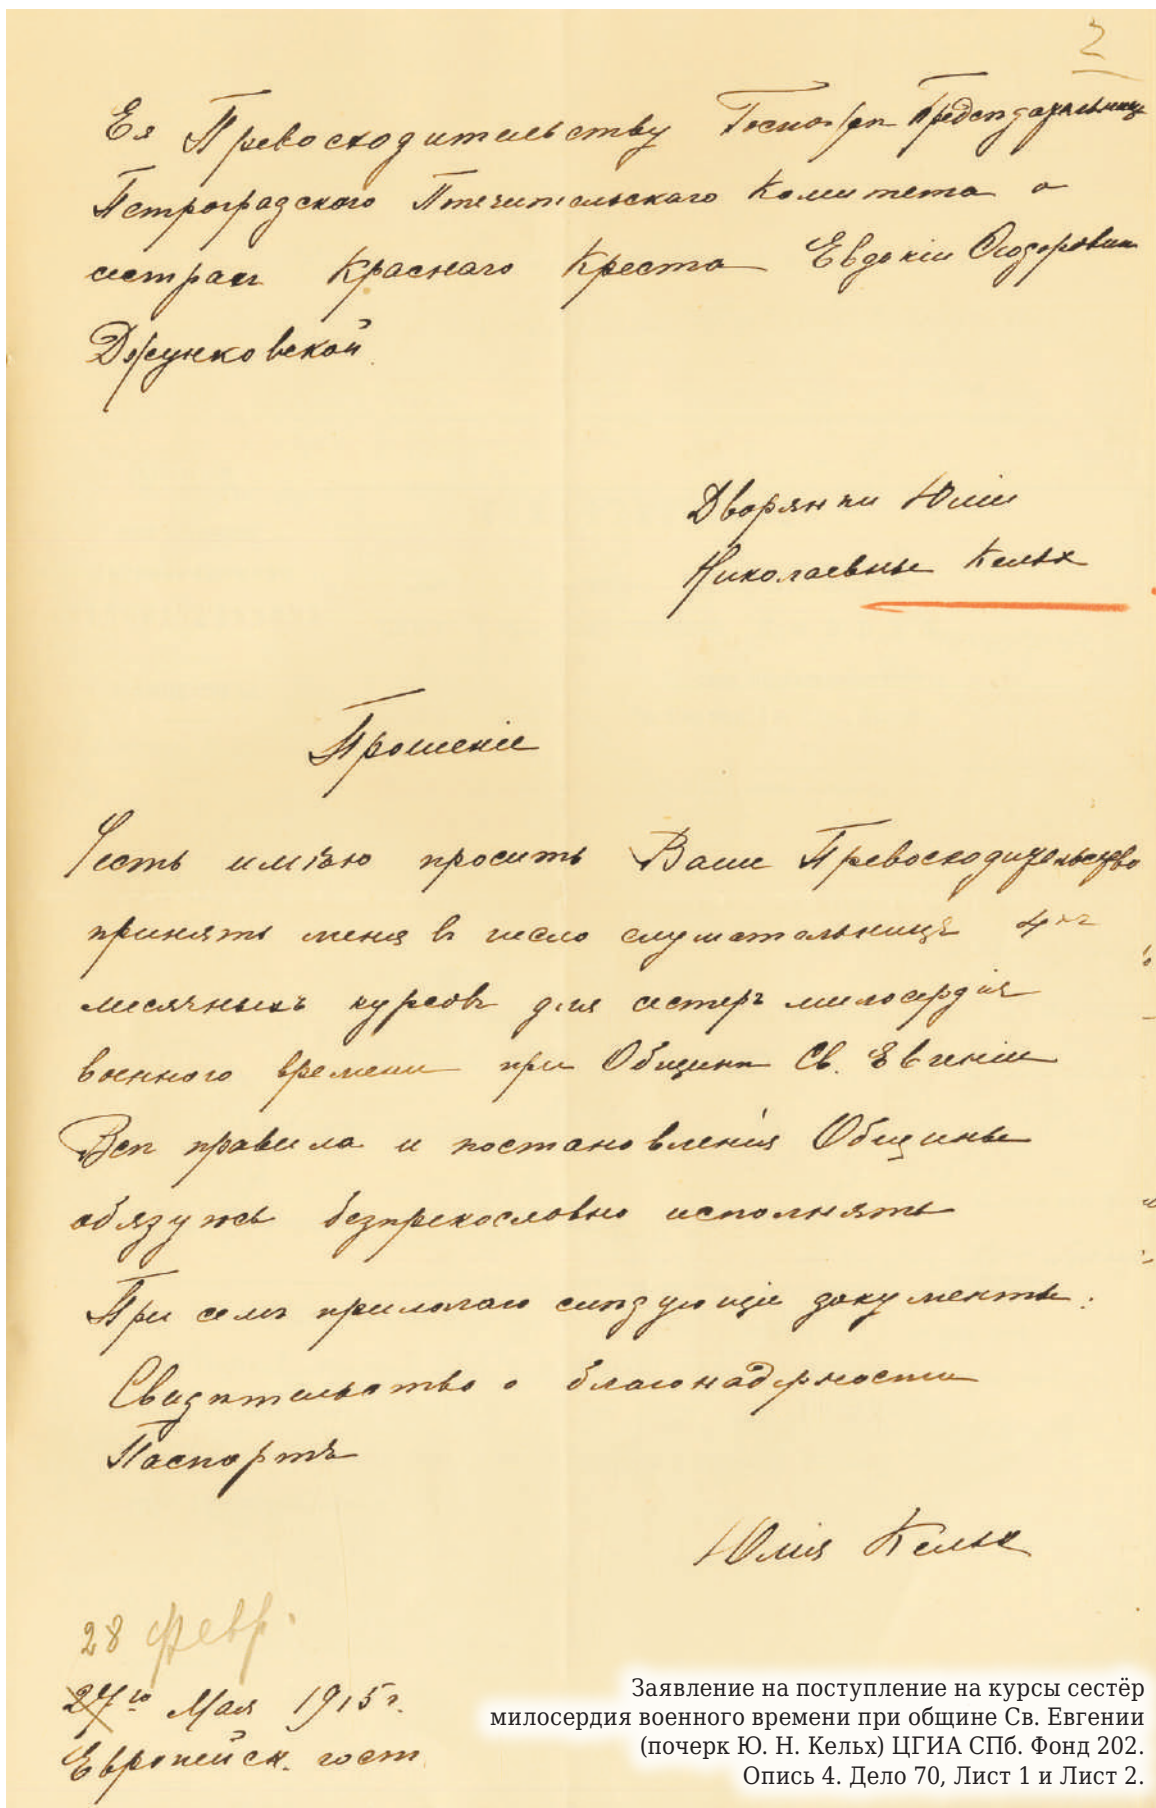 2
Ея Превосходительству Госпожѣ Предсѣдательницѣ
Петроградского Попечительскаго Комитета о
сестрахъ Краснаго Креста Евдокіи Ѳедоровнѣ
Джунковской
Дворянки Юліи
Николаевны Кельх
Прошеніе
Честь имѣю просить Ваше Превосходительство
принять меня въ число слушательницъ 4хъ
месячныхъ курсовъ для сестеръ милосердія
военного времени при Общинѣ Св. Евгеніи
Всѣ правила и постановленія Общины
обязуюсь безпрекословно исполнять
При семъ прилагаю слѣдующіе документы:
Свидѣтельство о благонадежности
Паспортъ
Юлія Кельх
28 февр.
27го Мая 1915 г.
Европейск. гост.
Заявление на поступление на курсы сестёр
милосердия военного времени при общине Св. Евгении
(почерк Ю. Н. Кельх) ЦГИА СПб. Фонд 202.
Опись 4. Дело 70, Лист 1 и Лист 2.